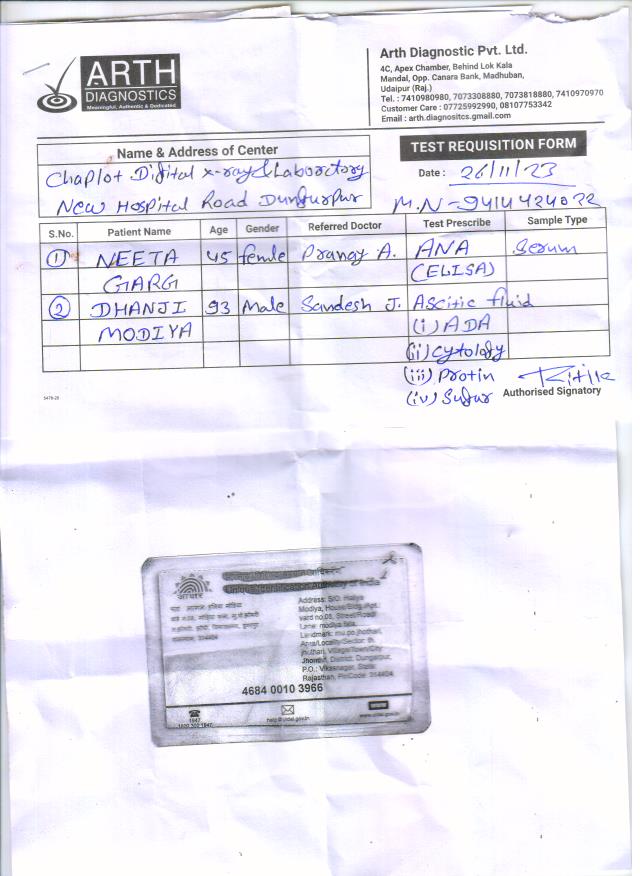 ARTH
DIAGNOSTICS
Meaningful, Authentic & Dedicated
Arth Diagnostic Pvt. Ltd.
4C, Apex Chamber, Behind Lok Kala
Mandal, Opp. Canara Bank, Madhuban,
Udaipur (Raj.)
Tel. : 7410980980, 7073308880, 7073818880, 7410970970
Customer Care : 07725992990, 08107753342
Email : arth.diagnositcs.gmail.com
Name & Address of Center
Chaplot Digital x-ray & Laborctory
New Hospital Road Dungurpur
TEST REQUISITION FORM
Date : 26/11/23
M.N-9414424022
S.No. Patient Name Age Gender Referred Doctor Test Prescribe Sample Type
1 NEETA 45 femle Pranay A. ANA Serum
GARG (ELISA)
2 DHANJI 93 Male Sandesh J. Ascitic fluid
MODIYA (i) ADA
(ii) cytology
(iii) Protin
(iv) Sugar
Authorised Signatory
5478-20
Address: S/O: Haliya
Modiya, House/Bldg./Apt.:
vard no.05, Street/Road/
Lane: modiya fala,
Landmark: mu.po.jhothari,
Area/Locality/Sector: th.
jhuthari, Village/Town/City:
Jhonthri, District: Dungarpur,
P.O.: Vikasnagar, State:
Rajasthan, PinCode: 314404
4684 0010 3966
1947
1800 300 1947
help@uidai.gov.in
www.uidai.gov.in